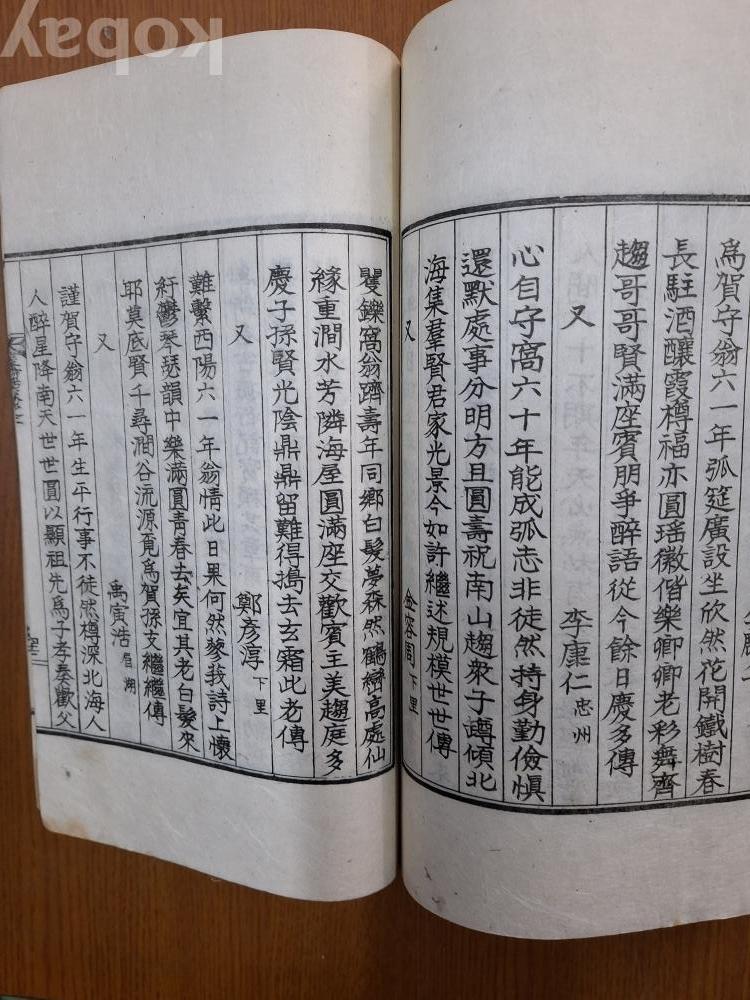 爲賀守翁六一年弧筵廣設坐欣然花開鐵樹春
長駐酒釀霞樽福亦圓瑤徽偕樂卿卿老彩舞齊
趨哥哥賢滿座賓朋爭醉語從今餘日慶多傳
又 李康仁 忠州
心自守窩六十年能成弧志非徒然持身勤儉愼
還默處事分明方且圓壽祝南山趨衆子蹲傾北
海集羣賢君家光景今如許繼述規模世世傳
又 金容周 下里
矍鑠窩翁躋壽年同鄕白髮夢森然鶴巒高處仙
緣重澗水芳隣海屋圓滿座交歡賓主美趨庭多
慶子孫賢光陰鼎鼎留難得搗去玄霜此老傳
又 鄭彥淳 下里
難繫西陽六一年翁情此日果何然蓼我詩上懷
紆鬱琴瑟韻中樂滿圓靑春去矣宜其老白髮來
耶莫底賢千尋澗谷流源覓爲賀孫支繼繼傳
又 禹寅浩 眉湖
謹賀守翁六一年生平行事不徒然樽深北海人
人醉星降南天世世圓以顯祖先爲子孝奏歡父
kobay